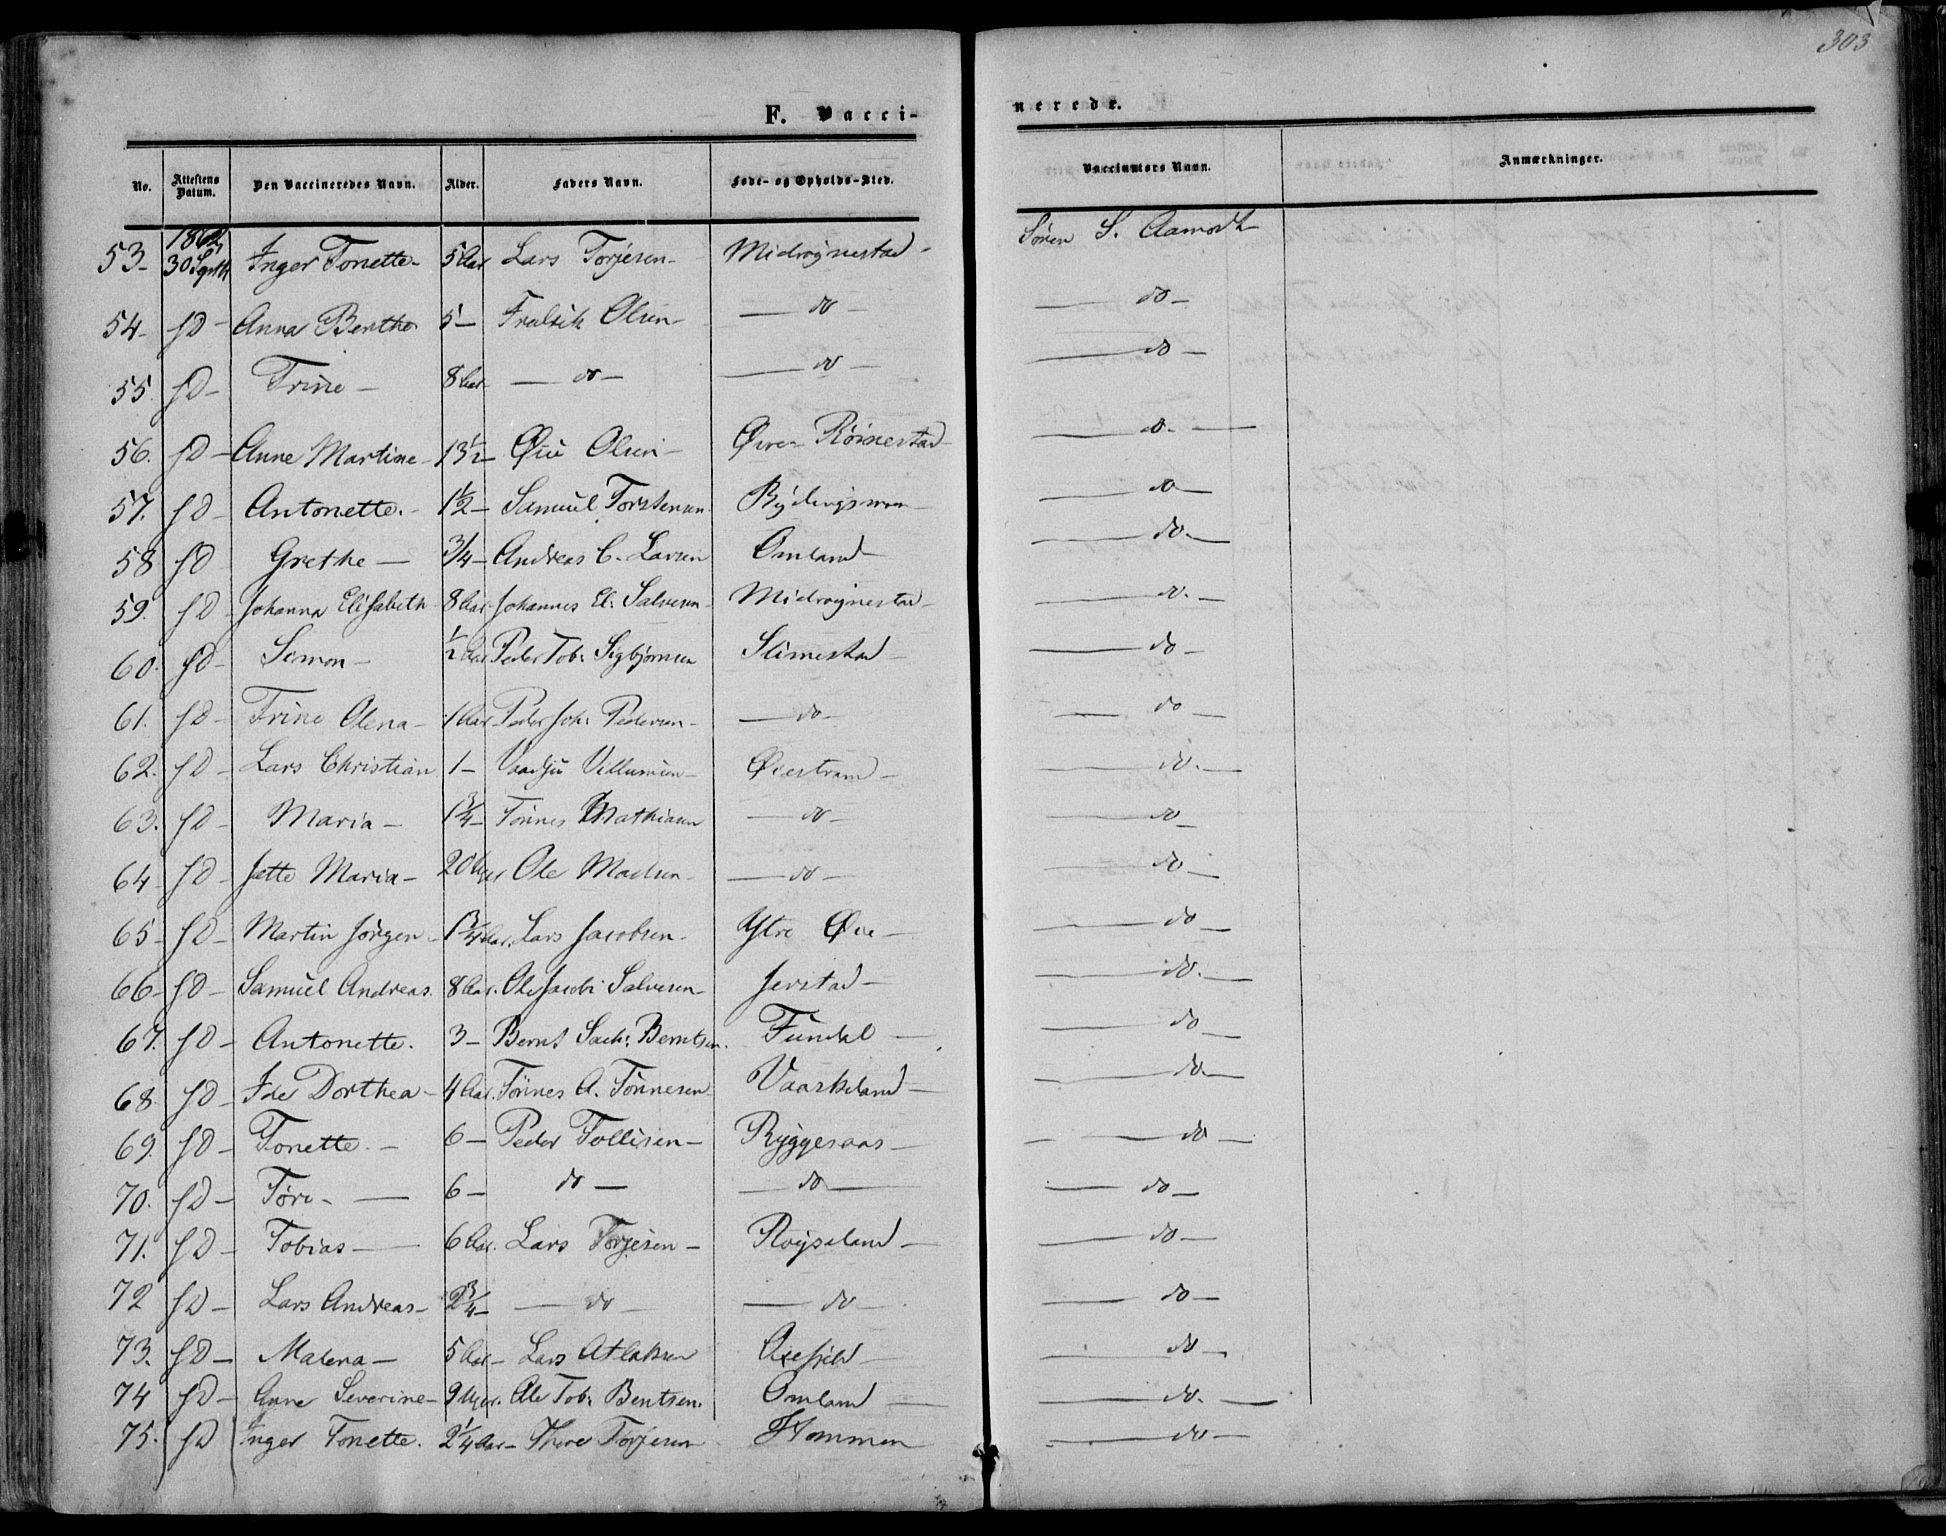 303
F. Vacci-
nerede.
No. Attestens Datum. Den Vaccineredes Navn. Alder. Faders Navn. Føde- og Opholds-Sted. Vaccinators Navn. Anmærkninger.
53- 30 Septb Inger Tonette- 5 Aar Lars Torjesen- Midrøgnestad- Søren S. Aamodt
54- fD- Anna Berthe 5- Fredrik Olsen- do- do-
55. fD- Trine- 8 Aar do- do- do-
56. fD- Anne Martine- 13½- Øie Olsen- Øvre Röinestad do.-
57. fD- Antonette.- 1½- Samuel Torstensen Rydingsmoen do-
58 fD- Grethe- 3/4- Andreas C. Larsen Omland- do.-
59. fD- Johanna Elisabeth 8 Aar Johannes El: Salvesen- Midrøgnestad- do.-
60. fD- Simon- ½ Aar Peder Tob: Sigbjørnsen Slimestad- do-
61. fD- Trine Olena- 1 Aar Peder Joh: Pedersen- do- do-
62. fD- Lars Christian 1- Vaadju Villumsen- Øiestrand- do.-
63. fD- Maria- 1¾- Tönnes Mathiasen do- do-
64- fD- Jette Maria- 20 Uger Ole Madsen- do- do-
65- fD- Martin Jörgen- 1¾ Aar. Lars Jacobsen- Ytre Øie- do-
66- fD- Samuel Andreas. 8 Aar. Ole Jacob: Salvesen- Jerstad- do.-
67. fD- Antonette. 3- Bernt Sach: Berntsen. Fundal- do-
68. fD- Ide Dorthea- 4 Aar. Tönnes A. Tönnesen- Vaaskeland- do-
69. fD- Tonette.- 6- Peder Tollisen- Ryggesaas- do-
70. fD- Töre- 6- do- do- do-
71. fD- Tobias- 6 Aar. Lars Torjesen- Röyseland- do-
72 fD- Lars Andreas- 2¾- do- do- do-
73. fD- Malena- 5 Aar- Lars Atlaksen do-
74 fD- Anne Severine- 9 Uger. Ole Tob: Bentsen. Omland- do.-
75. fD Inger Tonette. 2¼ Aar- Thore Torjesen Hommen do-